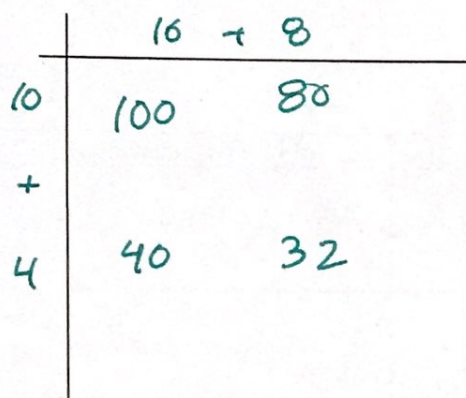 10 + 8
10 100 80
+
4 40 32